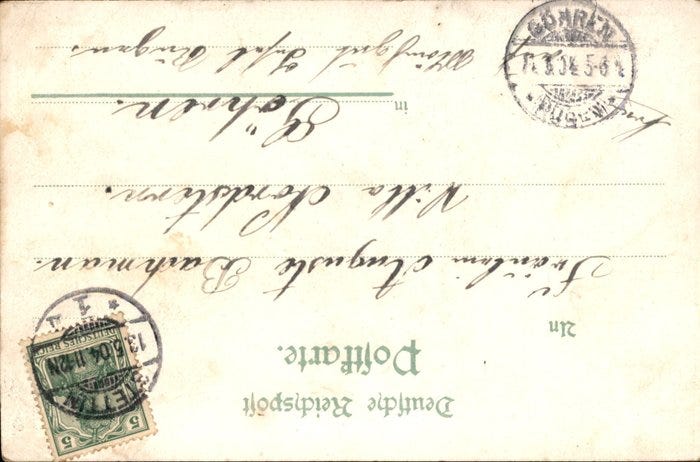 Deutsche Reichspost
Postkarte.
An
Fräulein Auguste Bachman.
Villa Nordstern.
in Göhren.
Insel Rügen
GÖHREN
5-6
(RÜGEN)
STETTIN
13.5.04.11-12N.
1
DEUTSCHES REICH
5 5